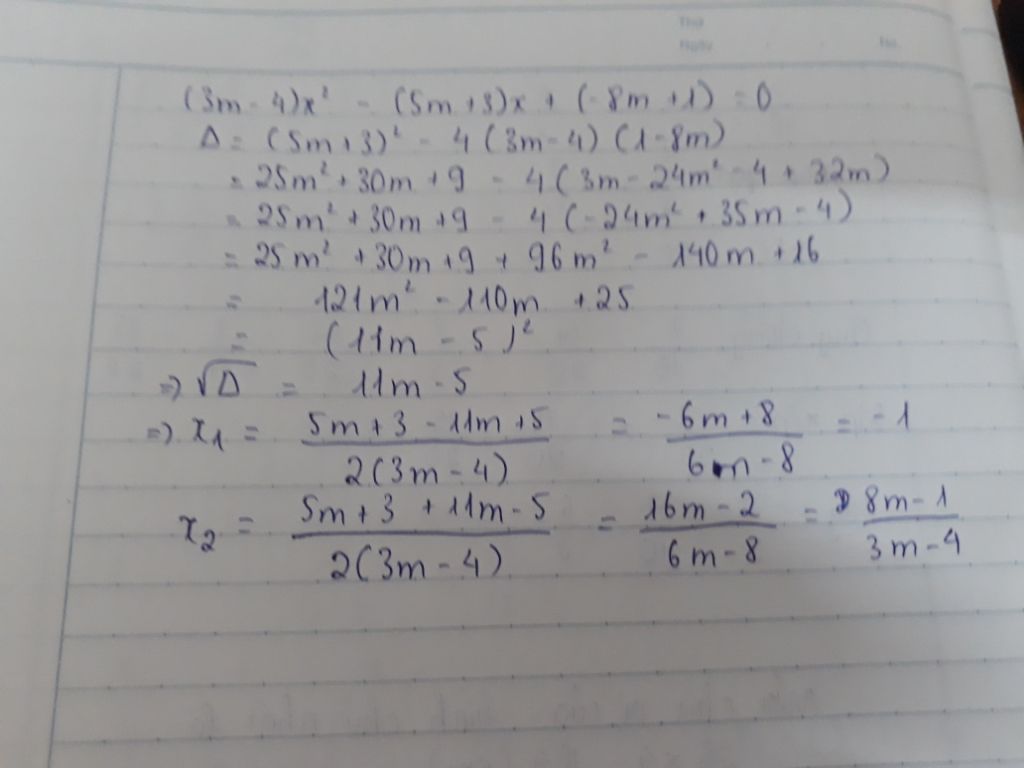 Thứ
Ngày No.
(3m - 4)x² - (5m + 3)x + (-8m + 1) = 0
Δ = (5m + 3)² - 4(3m - 4)(1 - 8m)
= 25m² + 30m + 9 - 4(3m - 24m² - 4 + 32m)
= 25m² + 30m + 9 - 4(-24m² + 35m - 4)
= 25m² + 30m + 9 + 96m² - 140m + 16
= 121m² - 110m + 25
= (11m - 5)²
=> √Δ = 11m - 5
=> x₁ = (5m + 3 - 11m + 5)/(2(3m - 4)) = (-6m + 8)/(6m - 8) = -1
x₂ = (5m + 3 + 11m - 5)/(2(3m - 4)) = (16m - 2)/(6m - 8) = (8m - 1)/(3m - 4)